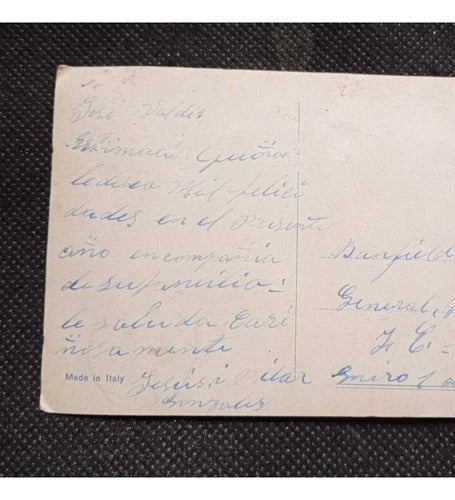 José Valdés
Estimada
le desea Mil felici
dades en el Presente
año en compañia
de su familia:
le saluda Cari
ñosamente
Jesús i Pilar
Gonzales
Made in Italy
Banfield
General
F. C.
Enero 1